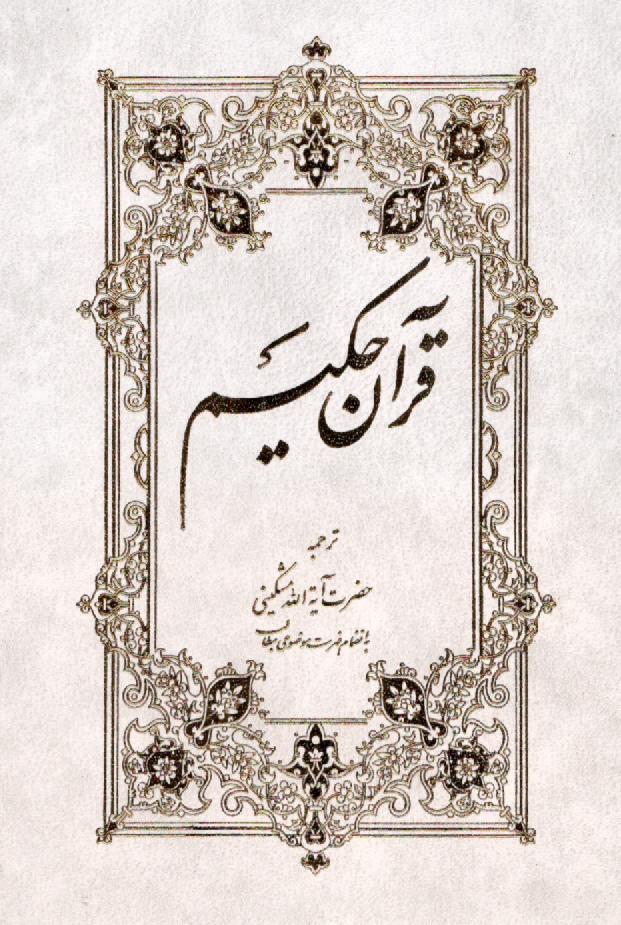 قرآن حکیم
ترجمه
حضرت آیة الله مشکینی
با انضمام فهرست موضوعی مطالب